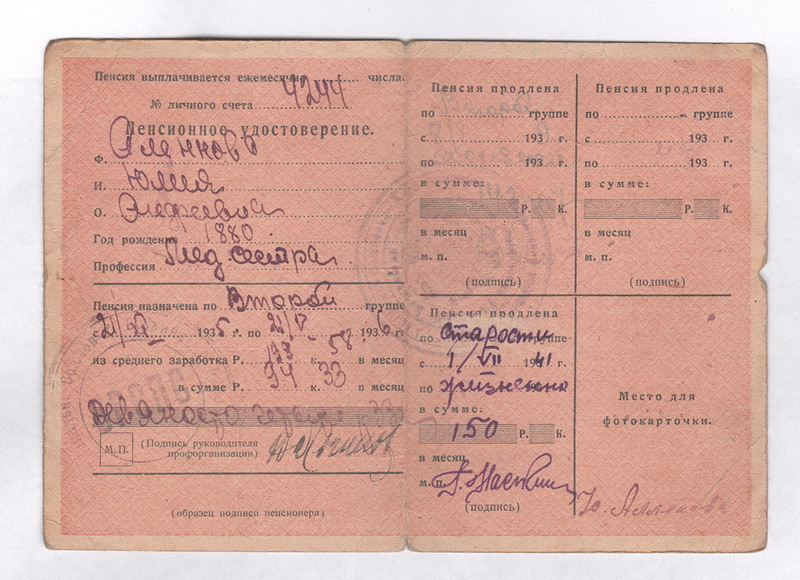 Пенсия выплачивается ежемесячно числа
№ личного счета 4244
Пенсионное удостоверение.
Ф.
И. Юлия
О. Андреевна
Год рождения 1880
Профессия Мед. сестра
Пенсия назначена по Второй группе
с 21/VI 1935 г. по 21/V 1936 г.
из среднего заработка Р. к. 58 в месяц
в сумме Р. 94 к. 33 в месяц
девяносто четыре 33
М.П.
(Подпись руководителя
профорганизации)
(образец подписи пенсионера)
Пенсия продлена
по группе
с 193 г.
по 193 г.
в сумме:
Р. К.
в месяц
м. п.
(подпись)
Пенсия продлена
по группе
с 193 г.
по 193 г.
в сумме:
Р. К.
в месяц
м. п.
(подпись)
Пенсия продлена
по старости группе
с 1/VII 1941 г.
по жизненно
в сумме:
150 Р. К.
в месяц
м. п.
(подпись)
Место для
фотокарточки.